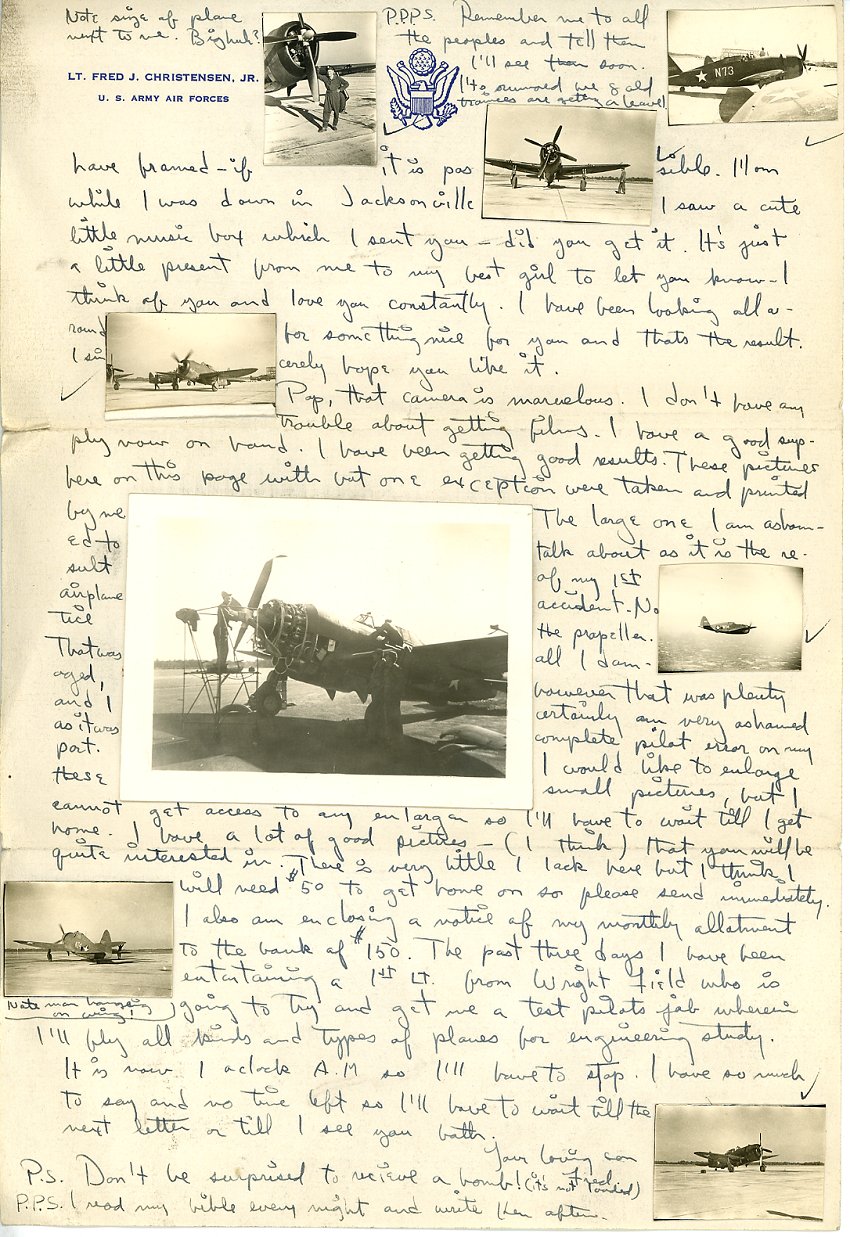 Note size of plane
next to me. Big huh?
LT. FRED J. CHRISTENSEN, JR.
U. S. ARMY AIR FORCES
P.P.P.S. Remember me to all
the peoples and tell them
I'll see them soon.
It's rumored we 8 old
are getting a leave!
N73
have framed – if it is possible. Mom
while I was down in Jacksonville I saw a cute
little music box which I sent you – did you get it. It's just
a little present from me to my best girl to let you know – I
think of you and love you constantly. I have been looking all a-
round for something nice for you and thats the result.
I sincerely hope you like it.
Pop, that camera is marvelous. I don't have any
trouble about getting films. I have a good sup-
ply now on hand. I have been getting good results. These pictures
here on this page with but one exception were taken and printed
by me The large one I am asham-
ed to talk about as it is the re-
sult of my 1st
airplane accident. No
tice the propeller.
That was all I dam-
aged, however that was plenty
and I certainly am very ashamed
as it was complete pilot error on my
part. I would like to enlarge
these small pictures, but I
cannot get access to any enlarger so I'll have to wait till I get
home. I have a lot of good pictures – (I think) that you will be
quite interested in. There is very little I lack here but I think I
will need $50 to get home on so please send immediately.
I also am enclosing a notice of my monthly allotment
to the bank of $150. The past three days I have been
entertaining a 1st Lt. from Wright Field who is
Note man hanging
on wing!
going to try and get me a test pilots job wherein
I'll fly all kinds and types of planes for engineering study.
It is now 1 oclock A.M so I'll have to stop. I have so much
to say and no time left so I'll have to wait till the
next letter or till I see you both.
Your loving son
Fred
P.S. Don't be surprised to recieve a bomb! (it's not loaded)
P.P.S. I read my bible every night and write Ken often.